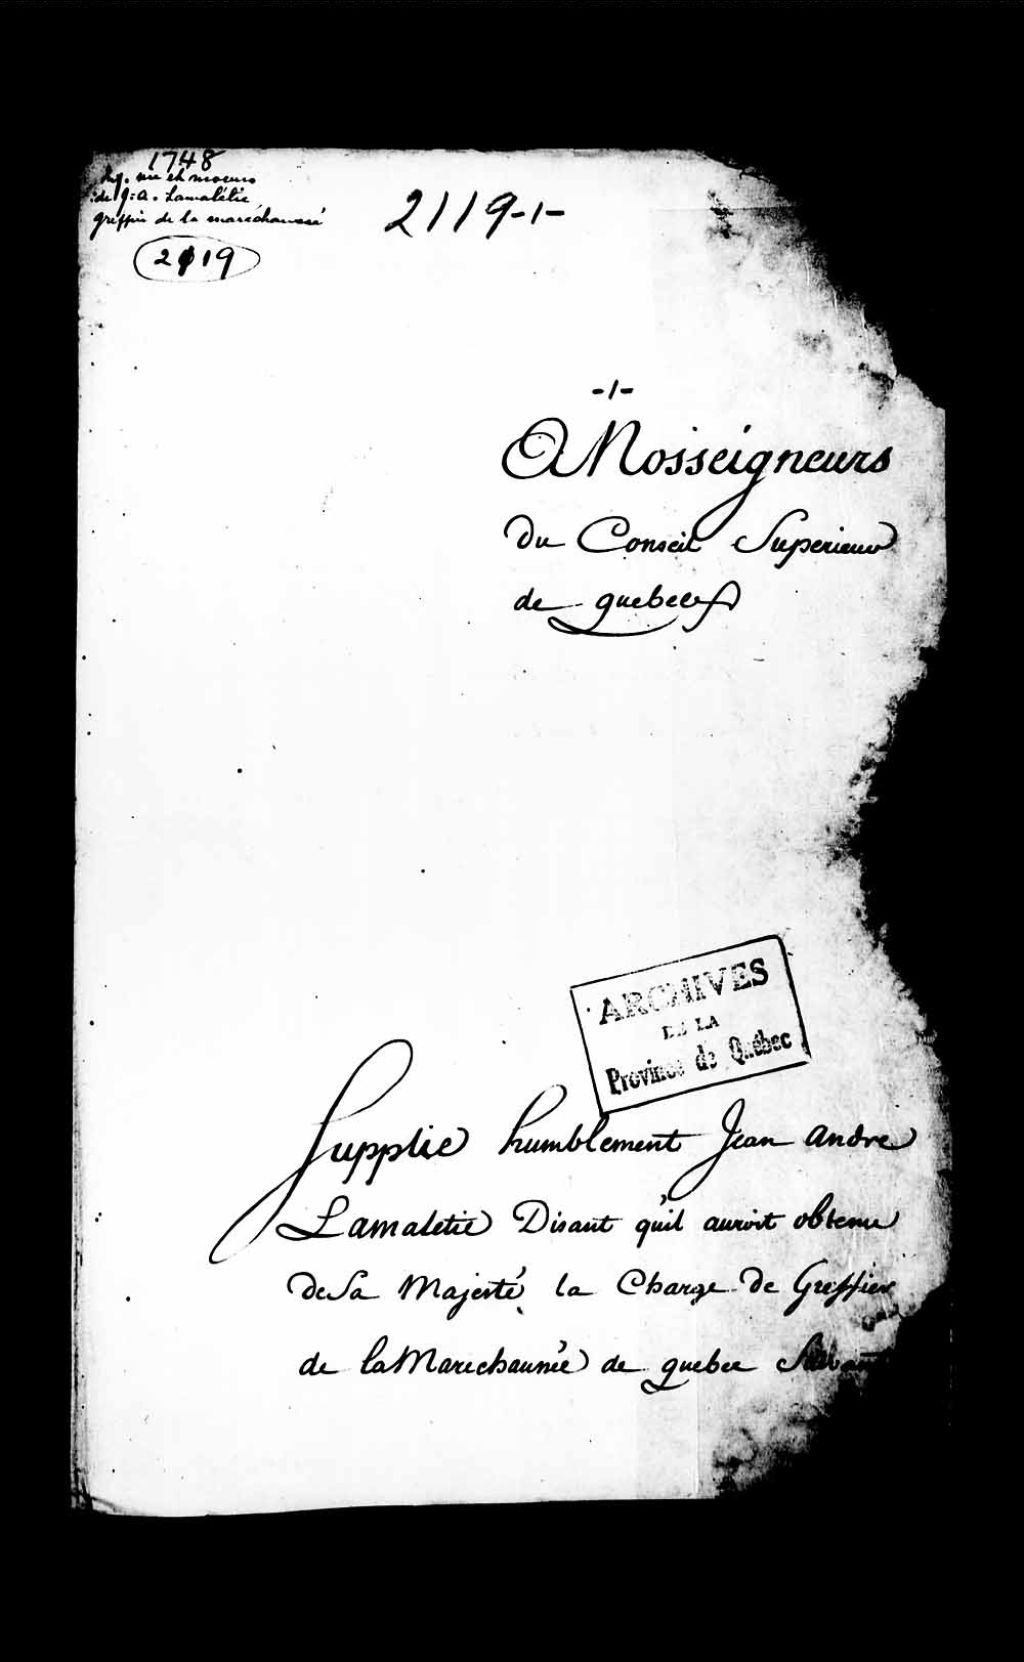 1748
Inf. vie et moeurs
de J: A. Lamalétie
greffier de la maréchaussé
2119
2119-1-
-1-
A Nosseigneurs
Du Conseil Superieur
de quebec
ARCHIVES
DE LA
Province de Québec
Supplie humblement Jean andre
Lamaletie Disant qu'il auroit obtenu
de Sa Majesté la Charge de Greffier
de la Marechaussée de quebec Suivant